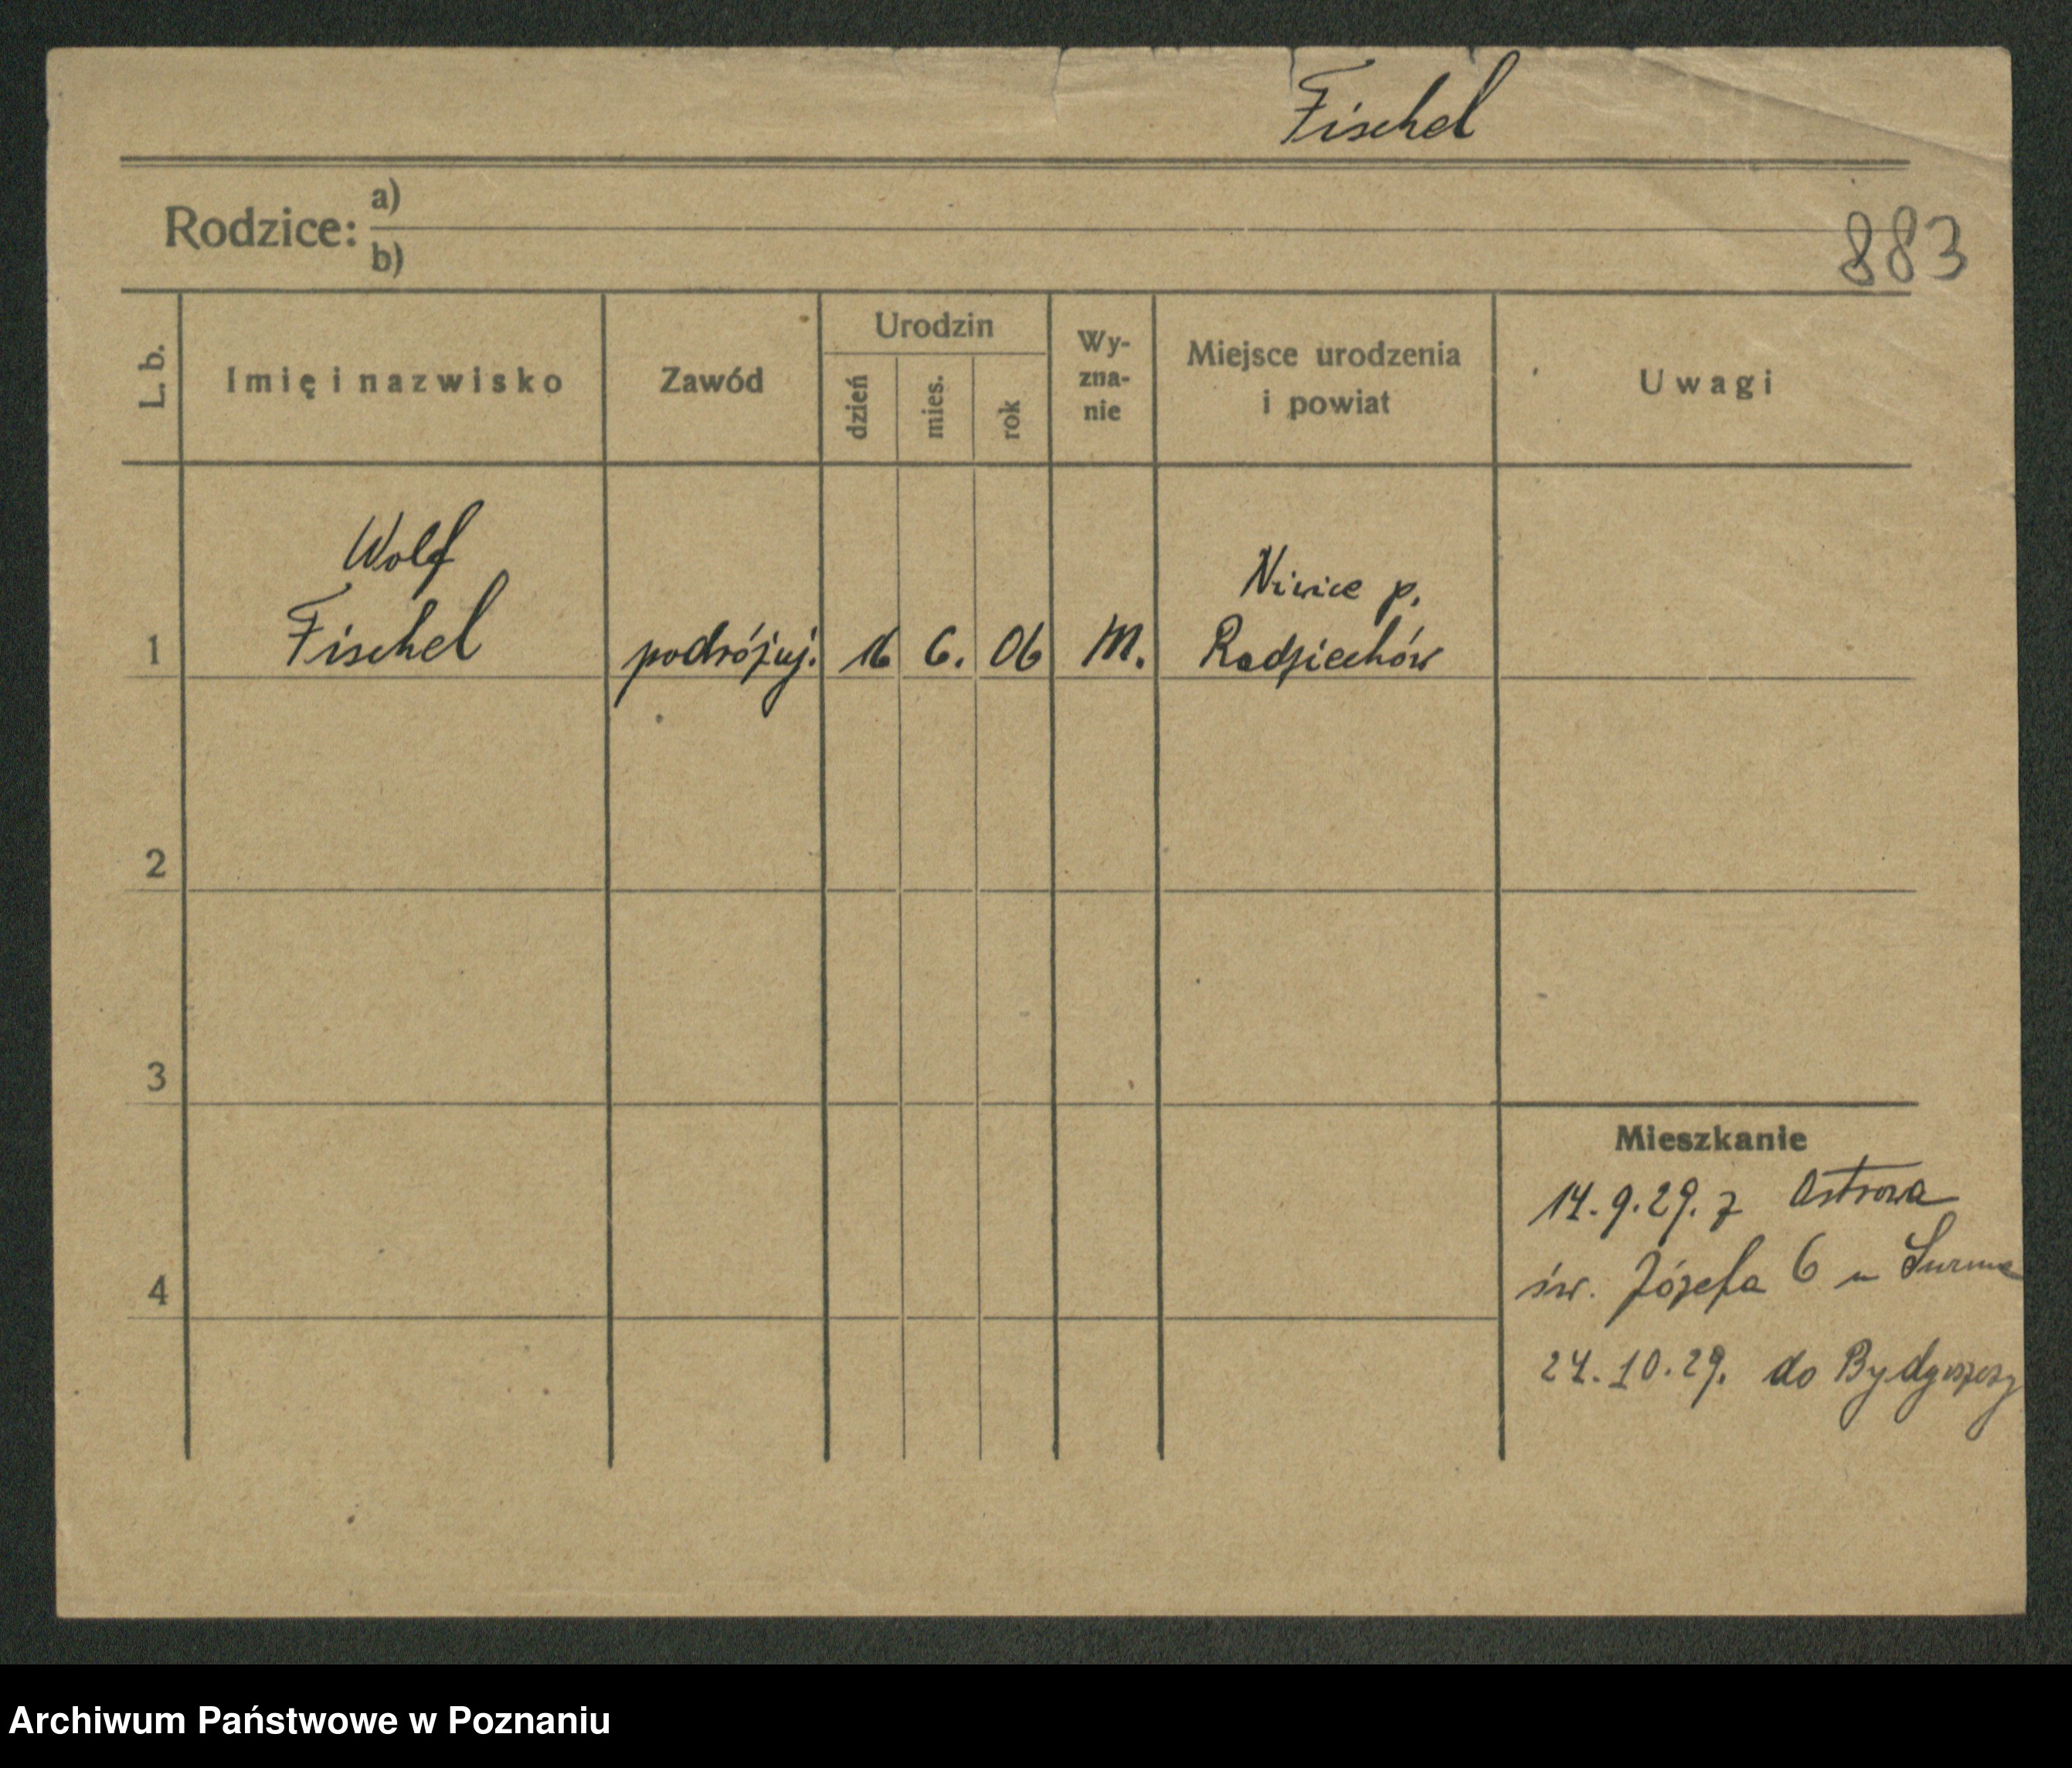 Fischel
Rodzice: a)
b)
883
L. b.
Imię i nazwisko
Zawód
Urodzin
dzień
mies.
rok
Wy-
zna-
nie
Miejsce urodzenia
i powiat
Uwagi
Wolf
Fischel
1
podróżuj.
16
6.
06
M.
Niwice p.
Radziechów
2
3
4
Mieszkanie
14.9.29. z Ostrowa
św. Józefa 6 u
24.10.29. do Bydgoszczy
Archiwum Państwowe w Poznaniu